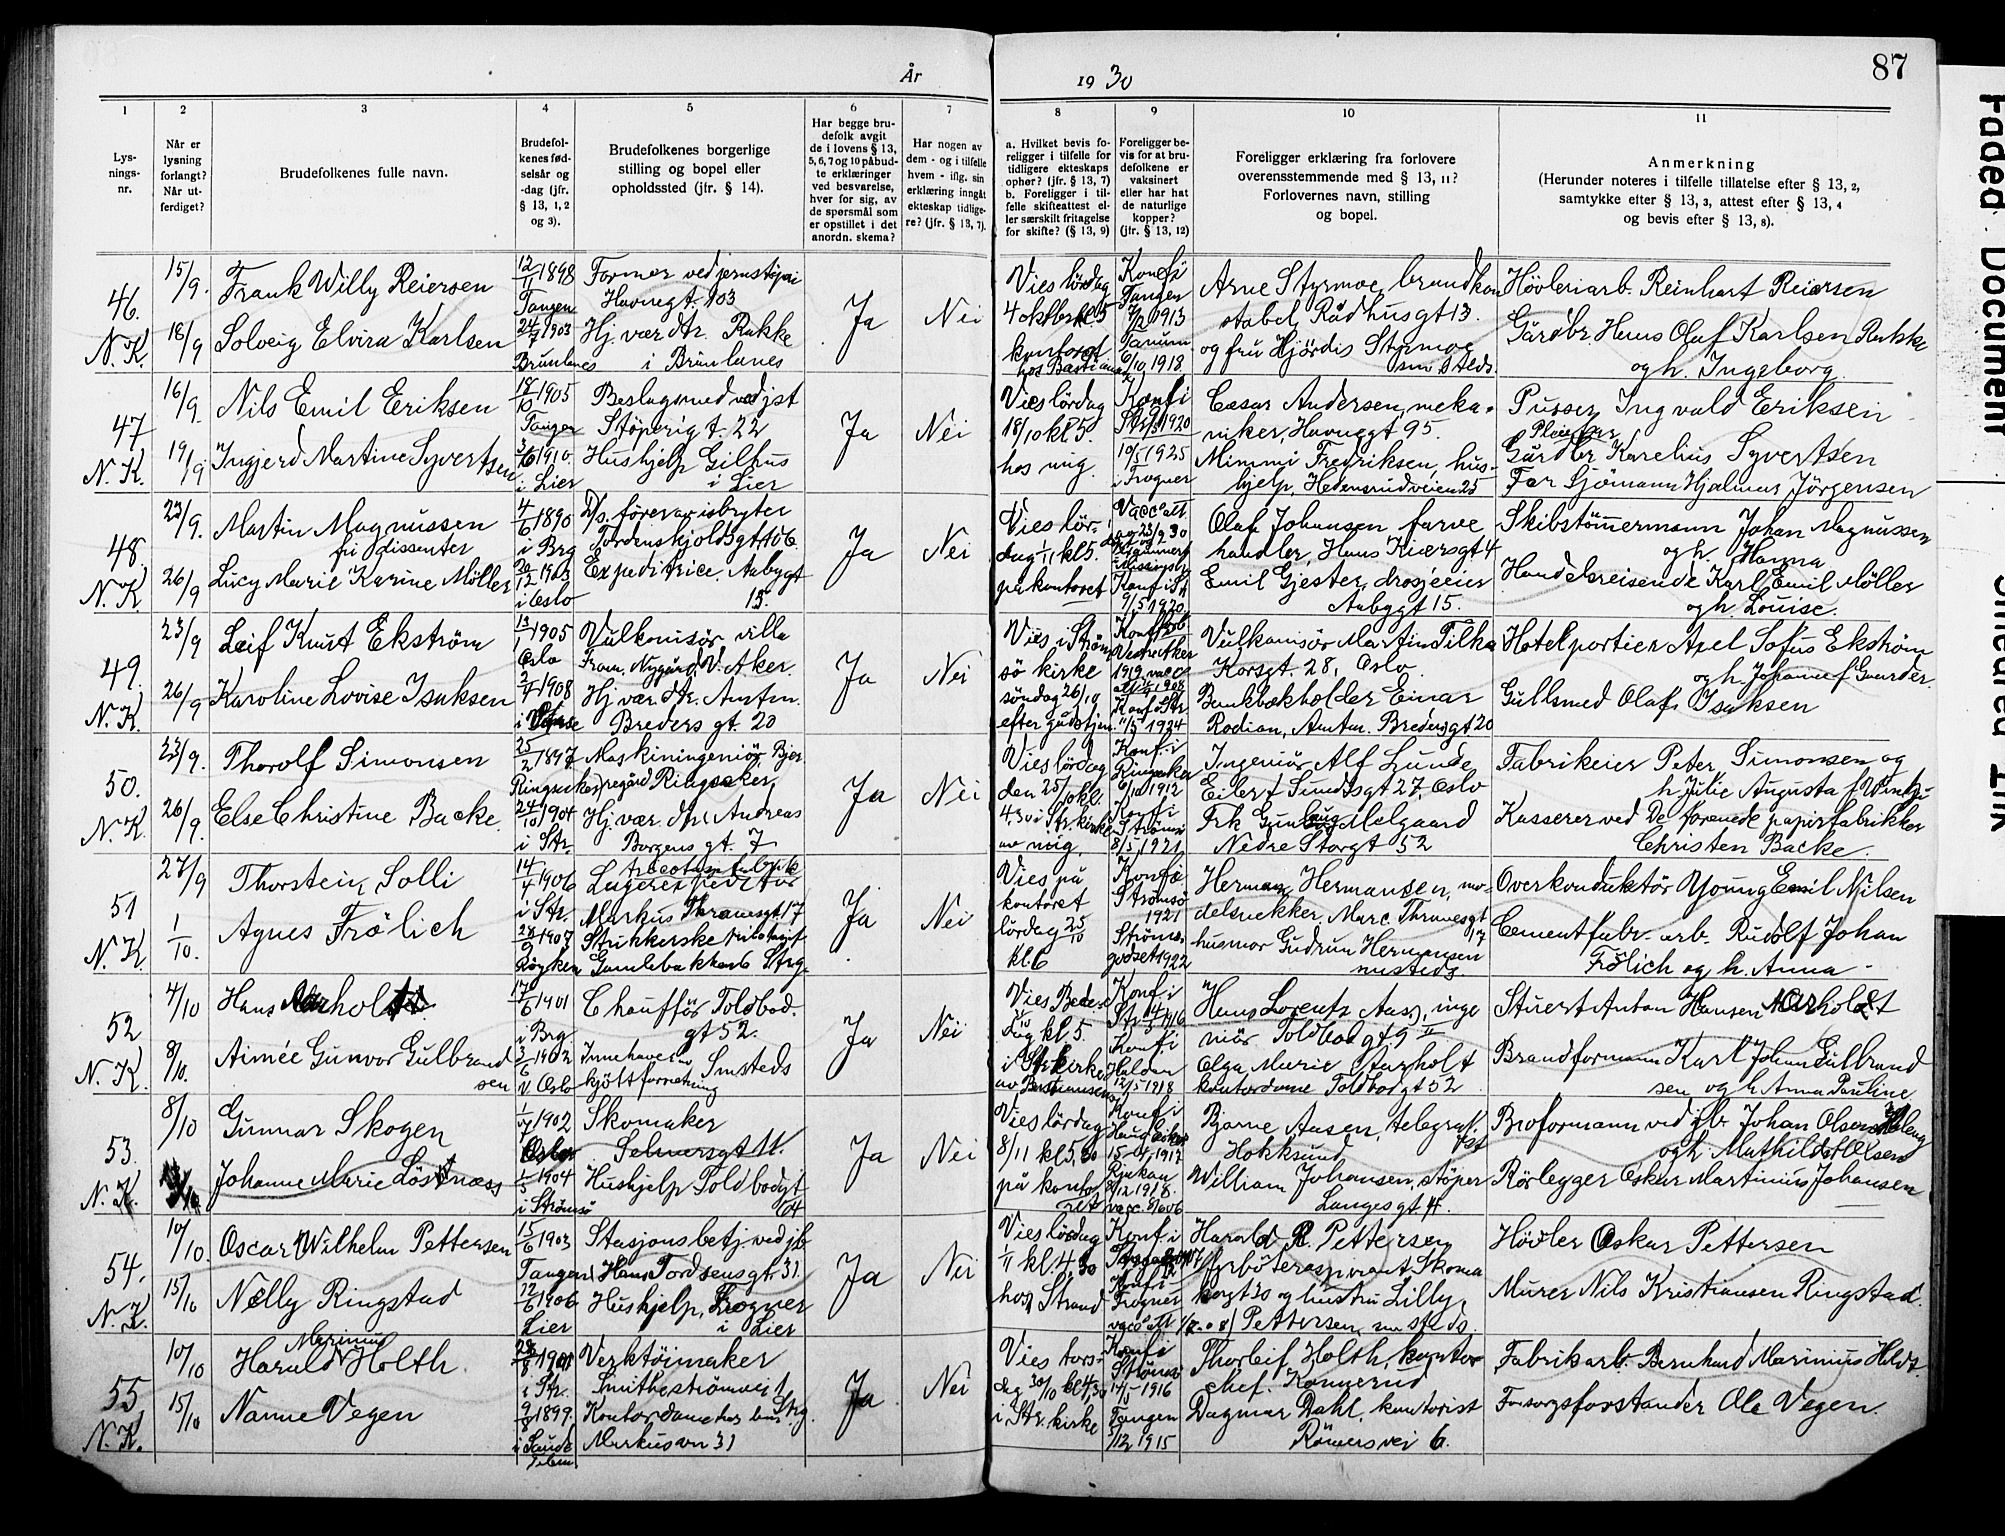 År 1930
87
1 2 3 4 5 6 7 8 9 10 11
Lys-
nings-
nr.
Når er
lysning
forlangt?
Når ut-
ferdiget?
Brudefolkenes fulle navn.
Brudefol-
kenes fød-
selsår og
-dag (jfr.
§ 13, 1, 2
og 3).
Brudefolkenes borgerlige
stilling og bopel eller
opholdssted (jfr. § 14).
Har begge bru-
defolk avgit
de i lovens § 13,
5, 6, 7 og 10 påbud-
te erklæringer
ved besvarelse,
hver for sig, av
de spørsmål som
er opstillet i det
anordn. skema?
Har nogen av
dem - og i tilfelle
hvem - iflg. sin
erklæring inngått
ekteskap tidlige-
re? (jfr. § 13, 7).
a. Hvilket bevis fo-
religger i tilfelle for
tidligere ekteskaps
opher? (jfr. § 13, 7)
b. Foreligger i til-
felle skifteattest el-
ler særskilt fritagelse
for skifte? (§ 13, 9)
Foreligger be-
vis for at bru-
defolkene er
vaksinert
eller har hat
de naturlige
kopper?
(jfr. § 13, 12)
Foreligger erklæring fra forlovere
overensstemmende med § 13, 11?
Forlovernes navn, stilling
og bopel.
Anmerkning
(Herunder noteres i tilfelle tillatelse efter § 13, 2,
samtykke efter § 13, 3, attest efter § 13, 4
og bevis efter § 13, 8).
46.
N.K.
15/9.
18/9
Frank Willy Reiersen
Solveig Elvira Karlsen
12/11 1898
Tangen
24/7 1903
Brunlanes
Former ved jernstøperi
Havnegt. 103
Hj. vær. dtr. Rakke
i Brunlanes
Ja
Nei
Vies lördag
4 oktbr kl 5
kontoret
hos Bastiansen
Konf i
Tangen
1913
Tanum
6/10 1918.
Arne Styrmoe, brandkon
stabel, Rådhusgt 13.
og fru Hjördis Styrmoe
sm steds.
Hövleriarb. Reinhart Reiersen
Gårdbr. Hans Olaf Karlsen Rakke
og h. Ingeborg.
47
N.K.
16/9.
19/9
Nils Emil Eriksen
Ingjerd Martine Syvertsen
18/10 1905
Tangen
3/6 1910.
i Lier
Beslagsmed ved jst
Støperigt. 22
Hushjelp Gilhus
i Lier
Ja
Nei
Vies lördag
18/10 kl 5.
hos mig.
Konf i
1920
10/5 1925
i Frogner
Cæsar Andersen, meka-
niker, Havnegt 95.
Mimmi Fredriksen, hus-
hjelp, Hedensrudveien 25
Pusser Ingvald Eriksen
Pleiefar
Gårdbr Karelius Syvertsen
Far Sjömann Hjalmar Jörgensen
48.
N.K.
23/9.
26/9
Martin Magnussen
fri dissenter
Lucy Marie Karine Möller
4/6 1890
i Brg
20/12 1903
i Oslo
D/s. förer av isbryter
Tordenskjoldsgt 106.
Expeditrice. Aabygt
15.
Ja
Nei
Vies lör-
dag 1/11 kl 5.
på kontoret
Vacc att
23/9 30
Konf i St.
9/5 1920
Olaf Johansen farve
handler, Hans Kiersgt 4
Emil Gjester, drosjeeier
Aabygt 15.
Skibstömmermann Johan Magnussen
og h. Hanna
Handelsreisende Karl Emil Möller
og h. Louise.
49.
N.K.
23/9
26/9
Leif Knut Ekström
Karoline Lovise Isaksen
13/1 1905
Oslo
2/7 1908
Vulkanisör, villa
Fram. Nygård V. Aker.
Hj. vær. dtr. Amtm.
Breders gt. 20
Ja
Nei
Vies i Ströms
sö kirke
söndag 26/10
efter gudstjen.
Vestre Aker
1919 vacc
att 1908
Konf i Str.
11/5 1924
Vulkanisör Martin Tilka
Korsgt. 28, Oslo
Bankbokholder Einar
Rodian, Amtm. Bredersgt 20
Hotelportier Axel Sofus Ekström
og h. Johanne f Gaarder.
Gullsmed Olaf Isaksen
50.
N.K.
23/9.
26/9.
Thorolf Simonsen
Else Christine Backe.
25/2 1897
Ringsaker
24/10 1904
i Str.
Maskiningeniör, Bjer
regård Ringsaker,
Hj. vær. dtr. Andreas
Borgens gt. 7
Ja
Nei
Vies lördag
den 25/10 kl.
4.30 i Str. kirke
av mig.
Konf. i
Ringsaker
6/10 1912
Konf i
Strömsö
8/5 1921
Ingeniör Alf Lunde
Eilert Sundtsgt 27, Oslo
Frk Gunlaug Melgaard
Nedre Storgt 52
Fabrikeier Peter Simonsen og
h. Julie Augusta f.
Kasserer ved De forenede papirfabrikker
Christen Backe.
51
N.K.
27/9
1/10.
Thorstein Solli
Agnes Frölich
14/4 1906
i Str.
28/9 1907
Röyken
Lagerexpeditör
Markus Thranesgt. 17
Strikkerske trikotasjef
Gamlebakken 6 Strg.
Ja
Nei
Vies på
kontoret
lördag 25/10
kl 6
Konf i
Strömsö
1921
Ströms-
godset 1922
Herman Hermansen, mo-
delsnekker, Marc. Thranesgt
17
husmor Gudrun Hermansen
smsteds
Overkonduktör Young Emil Nilsen
Cementfabr. arb. Rudolf Johan
Frölich og h. Anna -
52
N.K.
4/10
8/10.
Hans Aarholt
Aimée Gunvor Gulbrand
sen
17/6 1901
i Brg
3/6 1902
V. Oslo
Chauffør Toldbod.
gt 52.
Innehaver av
kjöttforretning Smsteds
Ja
Nei
kl 5.
i Str kirke
av Bastiansen
Konf i
Str 1916
Konf i
Halden
12/5 1918
Hans Lorentz Aass, inge
niör Toldbodgt, 9 II
Olga Marie Aarholt
kontordame Toldbodgt 52
Stuert Anton Hansen Aarholt
Brandformann Karl Johan Gulbrand
sen og h. Anna Pauline
53.
N.K.
8/10
Gunnar Skogen
Johanne Marie Löstnæss
1/7 1902
Oslo
1/5 1904
i Strömsö
Skomaker
Selmersgt 11.
Hushjelp Toldbodgt
64
Ja
Nei
Vies lördag
8/11 kl 5,30
på konto
ret
Konf i
1917
Rjukan
8/12 1918.
vacc. 8/6 06
Bjarne Aasen, telegraf.
Hokksund
William Johansen, stöper
Langesgt 4.
Broformann ved jb. Johan Olsen
og h. Mathilde f Olsen
Rörlegger Oskar Martinius Johansen
54.
N.K.
10/10.
15/10
Oscar Wilhelm Pettersen
Nelly Ringstad
15/6 1903
Tangen
12/6 1906
Lier
Stasjonsbetj. ved jb
Hans Tordsensgt 31.
Hushjelp, Frogner
i Lier
Ja
Nei
Vies lördag
1/11 kl. 4,30
hos Strand
Konf i
Konf i
Frogner
vacc att
Harald R. Pettersen
fyrböteraspirant Skoma
kergt 30 og hustru Lilly
Pettersen, sm steds.
Hövler Oskar Pettersen
Murer Nils Kristiansen Ringstad.
55
N.K.
10/10
15/10
Marinius
Harald Holth.
Nanne Vegen
1901
i Str.
9/8 1899.
i Saude
Telem
Verktöimaker
Smithestrømvei 1
Strg.
Kontordame hos
Markusvn 31
Ja
Nei
Vies tors-
dag 30/10 kl 4,30
i Str. kirke
Konf i
Strömsö
14/5 1916
Tangen
5/12 1915
Thorleif Holth, kontor
chef. Konnerud
Dagmar Dahl, kontorist
Römersvei 6.
Fabrikarb. Bernhard Marinius Holth
Forsorgsforstander Ole Vegen.
Faded Document